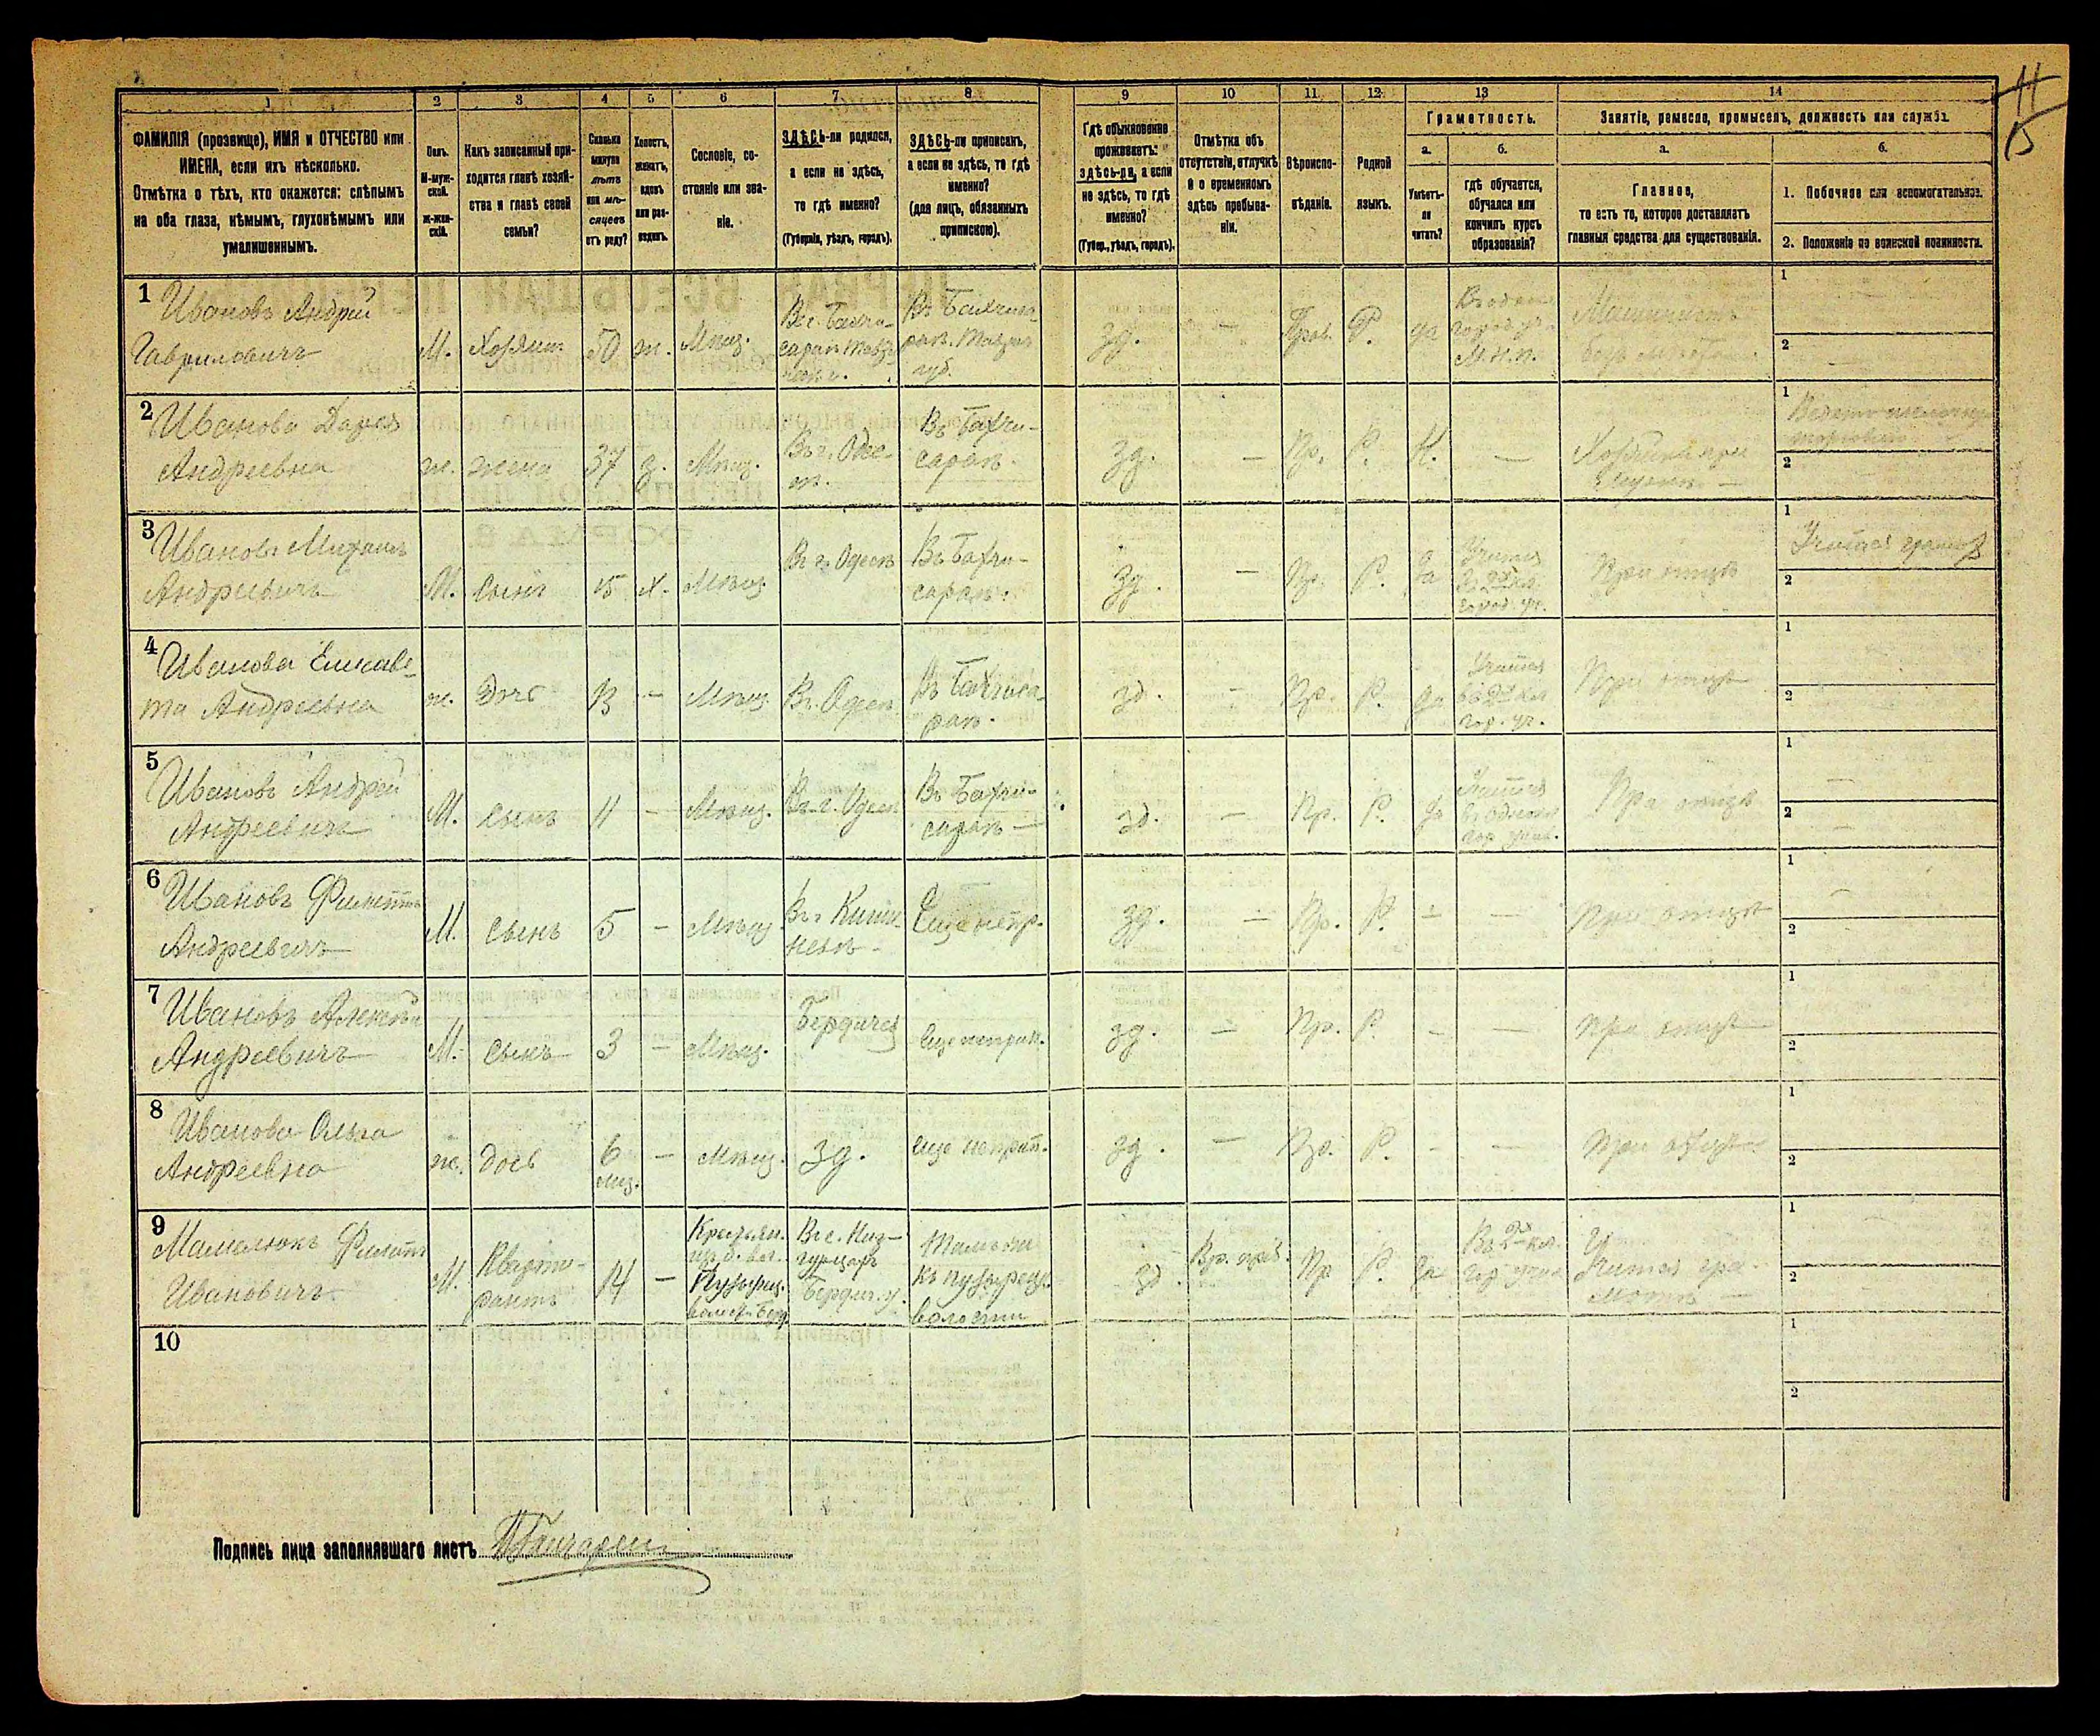 11
15
1 2 3 4 5 6 7 8 9 10 11 12 13 14
ФАМИЛІЯ (прозвище), ИМЯ и ОТЧЕСТВО или
ИМЕНА, если ихъ нѣсколько.
Отмѣтка о тѣхъ, кто окажется: слѣпымъ
на оба глаза, нѣмымъ, глухонѣмымъ или
умалишеннымъ.
Полъ.
М-муж-
ской.
ж-жен-
скій.
Какъ записанный при-
ходится главѣ хозяй-
ства и главѣ своей
семьи?
Сколько
минуло
лѣтъ
или мѣ-
сяцевъ
отъ роду?
Холостъ,
женатъ,
вдовъ
или раз-
веденъ.
Сословіе, со-
стояніе или зва-
ніе.
ЗДѢСЬ-ли родился,
а если не здѣсь,
то гдѣ именно?
(Губернія, уѣздъ, городъ).
ЗДѢСЬ-ли приписанъ,
а если не здѣсь, то гдѣ
именно?
(для лицъ, обязанныхъ
припискою).
Гдѣ обыкновенно
проживаетъ:
здѣсь-ли, а если
не здѣсь, то гдѣ
именно?
(Губер., уѣздъ, городъ).
Отмѣтка объ
отсутствіи, отлучкѣ
и о временномъ
здѣсь пребыва-
ніи.
Вѣроиспо-
вѣданіе.
Родной
языкъ.
Грамотность.
а.
Умѣетъ-
ли
читать?
б.
гдѣ обучается,
обучался или
кончилъ курсъ
образованія?
Занятіе, ремесло, промыселъ, должность или служба.
а.
Главное,
то есть то, которое доставляетъ
главныя средства для существованія.
б.
1. Побочное или вспомогательное.
2. Положеніе по воинской повинности.
1
Ивановъ Андрей
Гавриловичъ
М.
Хозяинъ
50
ж.
Мѣщ.
Въ г. Бахчи-
сараѣ
Въ Бахчиса-
раѣ Таврич.
губ.
зд.
—
Прав.
Р.
да
М.н.п.
Машинистъ
безъ мѣста
1
2
2
Иванова Дарья
Андреевна
ж.
жена
37
з.
Мѣщ.
Въ г. Одес-
сѣ.
Въ Бахчи-
сараѣ.
зд.
—
Пр.
Р.
Н.
—
Хозяйка при
1
2
3
Ивановъ Михаилъ
Андреевичъ
М.
сынъ
15
х.
Мѣщ.
Въ г. Одессѣ
Въ Бахчи-
сараѣ.
зд.
—
Пр.
Р.
да
город. уч.
При отцѣ
1
Учится грамотѣ
2
4
Иванова Елисаве-
та Андреевна
ж.
дочь
13
—
Мѣщ.
Въ г. Одессѣ
Въ Бахчиса-
раѣ.
зд.
—
Пр.
Р.
да
Учится
въ 2х кл.
гор. уч.
При отцѣ
1
2
5
Ивановъ Андрей
Андреевичъ
М.
сынъ
11
—
Мѣщ.
Въ г. Одессѣ
Въ Бахчи-
сараѣ —
зд.
—
Пр.
Р.
да
Учится
При отцѣ
1
2
6
Ивановъ Филиппъ
Андреевичъ
М.
сынъ
5
—
Мѣщ.
Въ г. Киши-
невѣ —
Еще не пр.
зд.
—
Пр.
Р.
—
—
При отцѣ
1
2
7
Ивановъ Алексѣй
Андреевичъ
М.
сынъ
3
—
Мѣщ.
Бердичев
Еще не прип.
зд.
—
Пр.
Р.
—
—
При отцѣ
1
2
8
Иванова Ольга
Андреевна
ж.
дочь
6
мѣс.
—
Мѣщ.
зд.
еще не прип.
зд.
—
Пр.
Р.
—
—
При отцѣ
1
2
9
Мамалюкъ Филиппъ
Ивановичъ
М.
Кварти-
рантъ
14
—
Крестьян.
волости Берд.
Въ с. Низ-
гурцахъ
Бердич. у.
къ пузырецк.
волости
зд.
Вр. преб.
Пр.
Р.
да
Въ 2х кл.
гор. учил.
Учится гра-
мотѣ —
1
2
10
1
2
Подпись лица заполнявшаго листъ